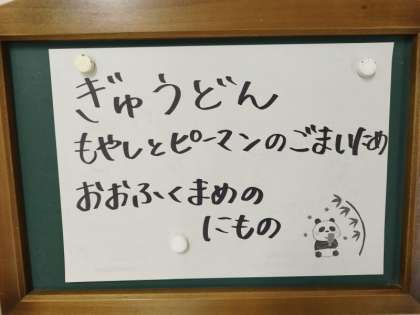 ぎゅうどん
もやしとピーマンのごまいため
おおふくまめの
にもの